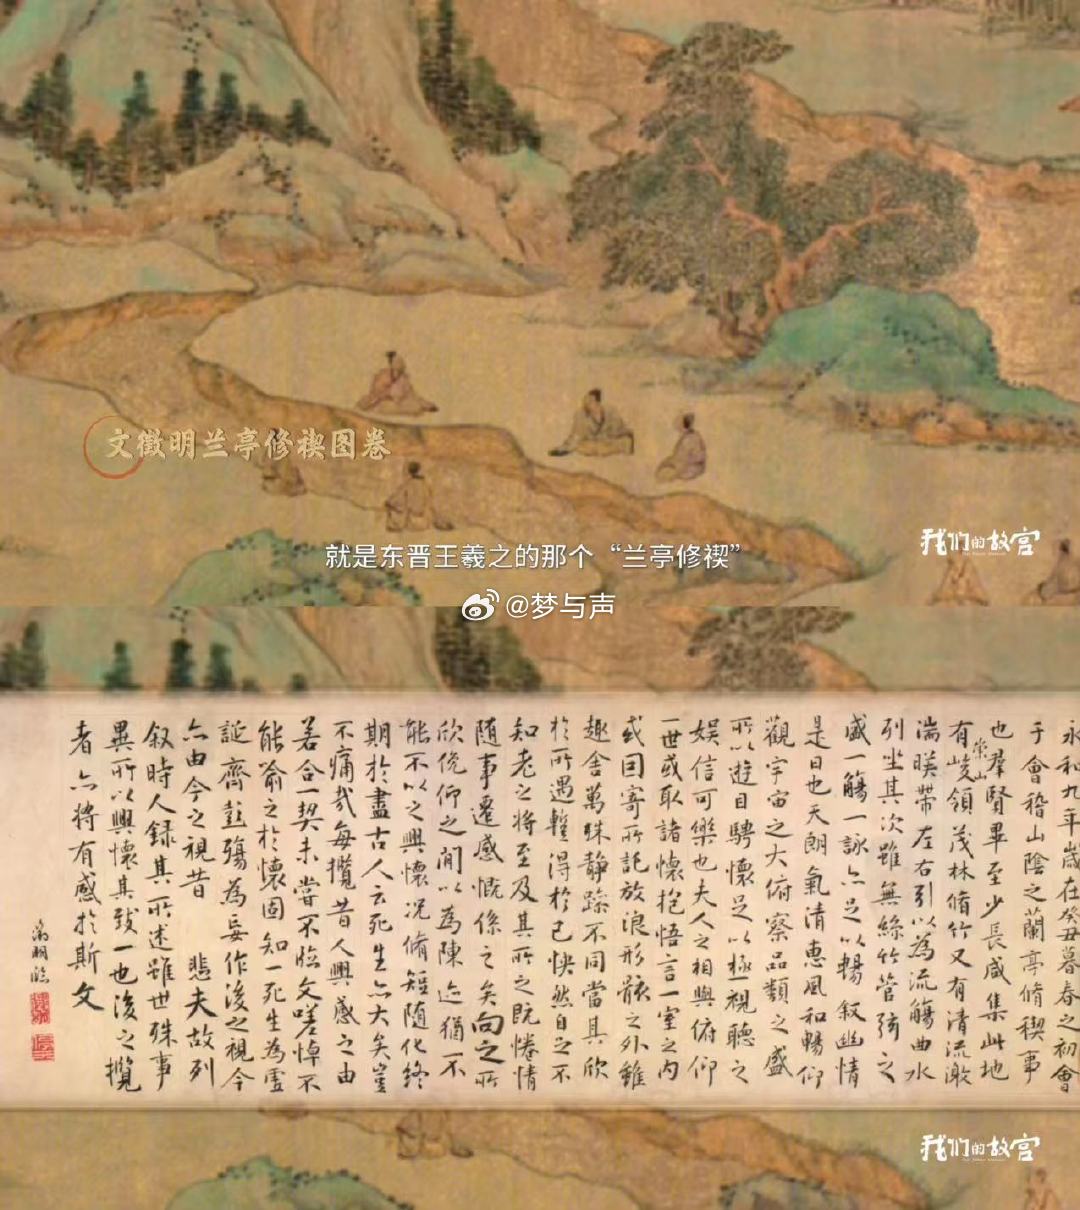 文徵明兰亭修禊图卷
我们的故宫
就是东晋王羲之的那个“兰亭修禊”
@梦与声
永和九年歲在癸丑暮春之初會
于會稽山陰之蘭亭脩稧事
也羣賢畢至少長咸集此地
崇山
有峻領茂林脩竹又有清流激
湍暎帶左右引以為流觴曲水
列坐其次雖無絲竹管弦之
盛一觴一詠亦足以暢叙幽情
是日也天朗氣清惠風和暢仰
觀宇宙之大俯察品類之盛
所以遊目騁懷足以極視聽之
娛信可樂也夫人之相與俯仰
一世或取諸懷抱悟言一室之内
或因寄所託放浪形骸之外雖
趣舍萬殊静躁不同當其欣
於所遇蹔得於己快然自足不
知老之將至及其所之既惓情
随事遷感慨係之矣向之所
欣俛仰之閒以為陳迹猶不
能不以之興懷況脩短随化終
期於盡古人云死生亦大矣豈
不痛哉每攬昔人興感之由
若合一契未嘗不臨文嗟悼不
能喻之於懷固知一死生為虛
誕齊彭殤為妄作後之視今
亦由今之視昔 悲夫故列
叙時人録其所述雖世殊事
異所以興懷其致一也後之攬
者亦將有感於斯文
徵明臨
我们的故宫